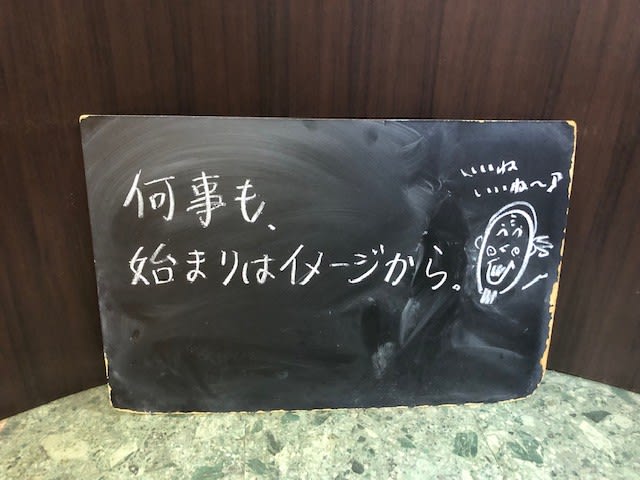 何事も、
始まりはイメージから。
いいね
いいね〜♪